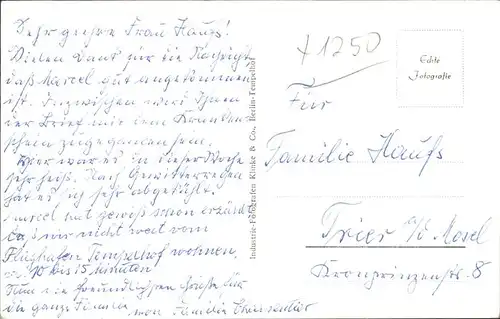 Sehr geehrte Frau Haufs!
Vielen Dank für die Nachricht
daß Marcel gut angekommen
ist. Inzwischen wird Ihnen
der Brief mit dem Kranken-
schein zugegangen sein.
Hier war es in dieser Woche
sehr heiß. Nach Gewitterregen
hat es sich sehr abgekühlt.
Marcel hat gewiß schon erzählt
daß wir nicht weit vom
Flughafen Tempelhof wohnen.
10 bis 15 Minuten
Nun die freundlichsten Grüße für
die ganze Familie
von Familie
Industrie-Fotografen Klinke & Co., Berlin-Tempelhof
+1250
Echte
Fotografie
Für
Familie Haufs
Trier a/d Mosel
Kronprinzenstr. 8